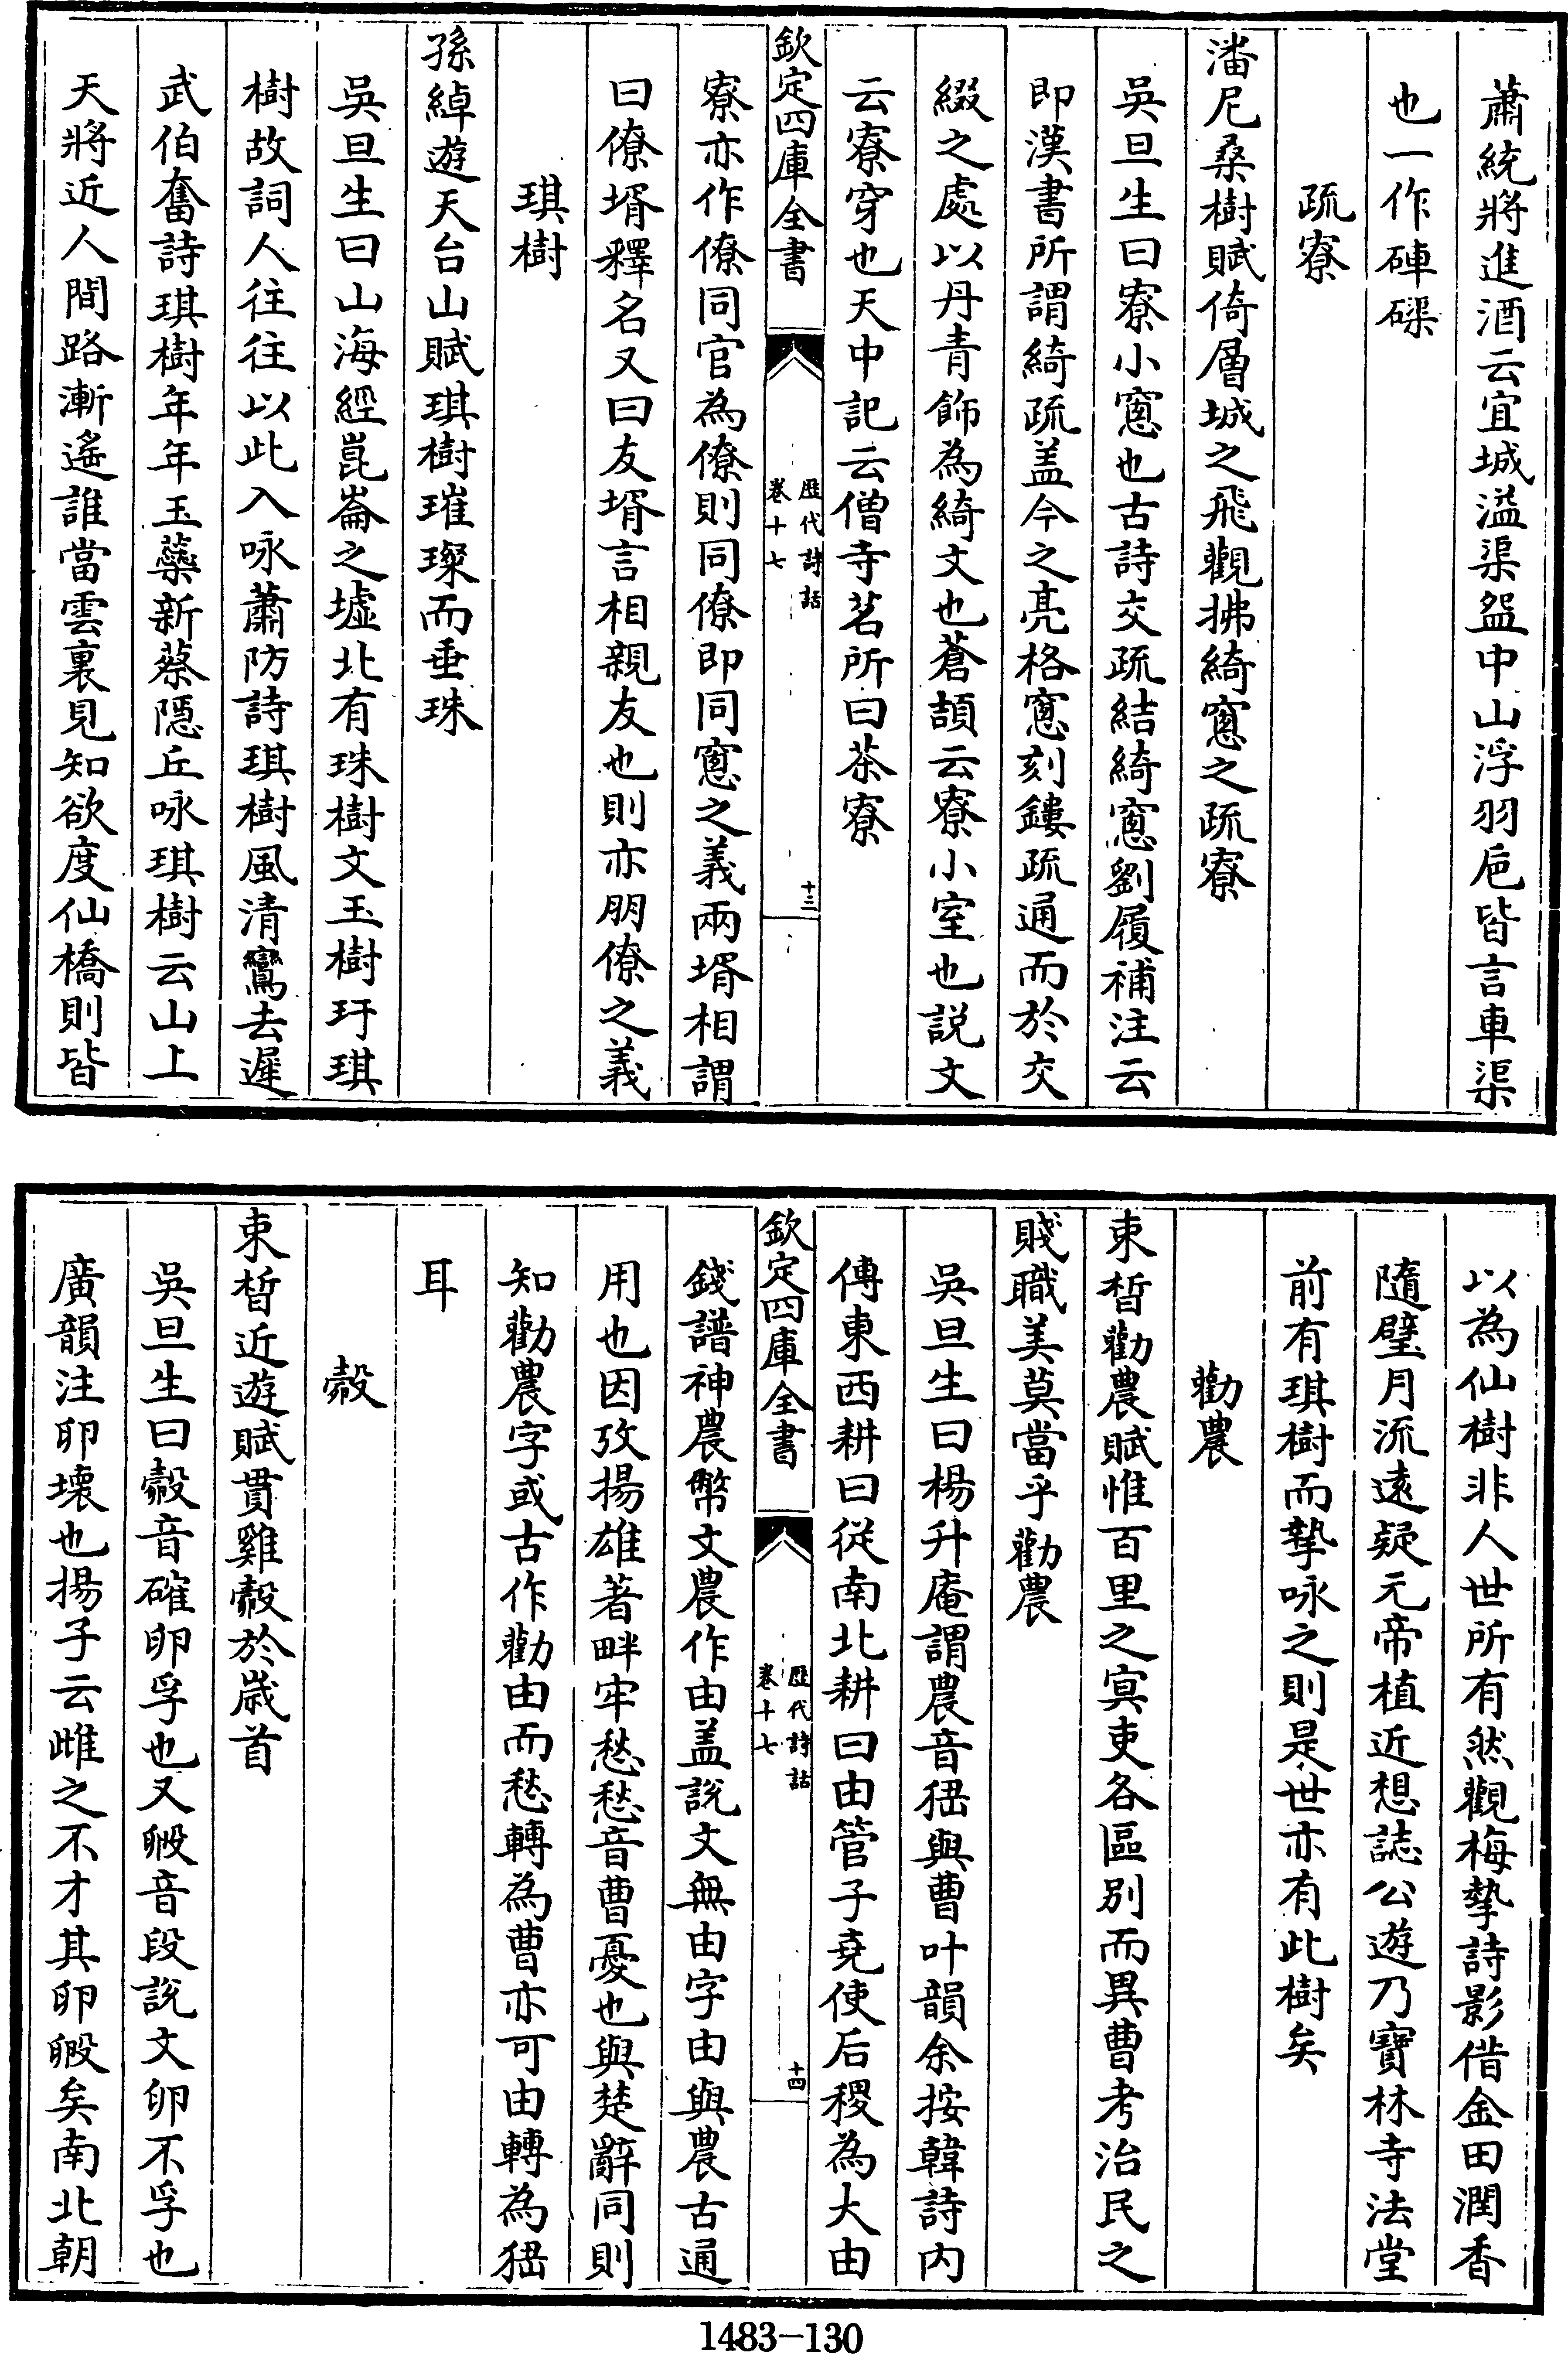 蕭統將進酒云宜城溢渠盌中山浮羽巵皆言車渠
也一作硨磲
疏寮
潘尼桑樹賦倚層城之飛觀拂綺窻之疏寮
吳旦生曰寮小窻也古詩交疏結綺窻劉履補注云
即漢書所謂綺疏盖今之亮格窻刻鏤疏通而於交
綴之處以丹青飾為綺文也蒼頡云寮小室也説文
云寮穿也天中記云僧寺茗所曰茶寮
欽定四庫全書
歴代詩話
卷十七
十三
寮亦作僚同官為僚則同僚即同窻之義兩壻相謂
曰僚壻釋名又曰友壻言相親友也則亦朋僚之義
琪樹
孫綽遊天台山賦琪樹璀璨而垂珠
吳旦生曰山海經崑崙之墟北有珠樹文玉樹玗琪
樹故詞人往往以此入咏蕭防詩琪樹風清鸞去遲
武伯奮詩琪樹年年玉蘂新蔡隱丘咏琪樹云山上
天將近人間路漸遙誰當雲裏見知欲度仙橋則皆
以為仙樹非人世所有然觀梅摯詩影借金田潤香
隨璧月流遠疑元帝植近想誌公遊乃寶林寺法堂
前有琪樹而摯咏之則是世亦有此樹矣
勸農
束晳勸農賦惟百里之寘吏各區別而異曹考治民之
賤職美莫當乎勸農
吳旦生曰楊升庵謂農音猱與曹叶韻余按韓詩内
傳東西耕曰從南北耕曰由管子堯使后稷為大由
欽定四庫全書
歴代詩話
卷十七
十四
錢譜神農幣文農作由盖說文無由字由與農古通
用也因攷揚雄著畔牢愁愁音曹憂也與楚辭同則
知勸農字或古作勸由而愁轉為曹亦可由轉為猱
耳
㲉
束晳近遊賦貫雞㲉於歲首
吳旦生曰㲉音確卵孚也又毈音段說文卵不孚也
廣韻注卵壞也揚子云雌之不才其卵毈矣南北朝
1483-130